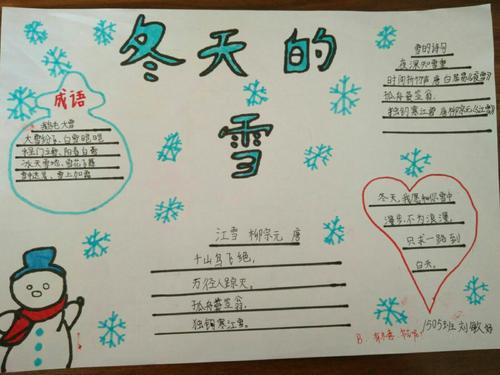 冬天的
雪
成语
鹅毛大雪
冰天雪地
雪上加霜
雪的诗句
夜深知雪重
时闻折竹声 唐 白居易《夜雪》
孤舟蓑笠翁
独钓寒江雪 唐 柳宗元《江雪》
江雪 柳宗元 唐
千山鸟飞绝,
万径人踪灭。
孤舟蓑笠翁,
独钓寒江雪。
冬天,我愿和你雪中
漫步,不为浪漫,
只求一路到
白头。
1505班刘